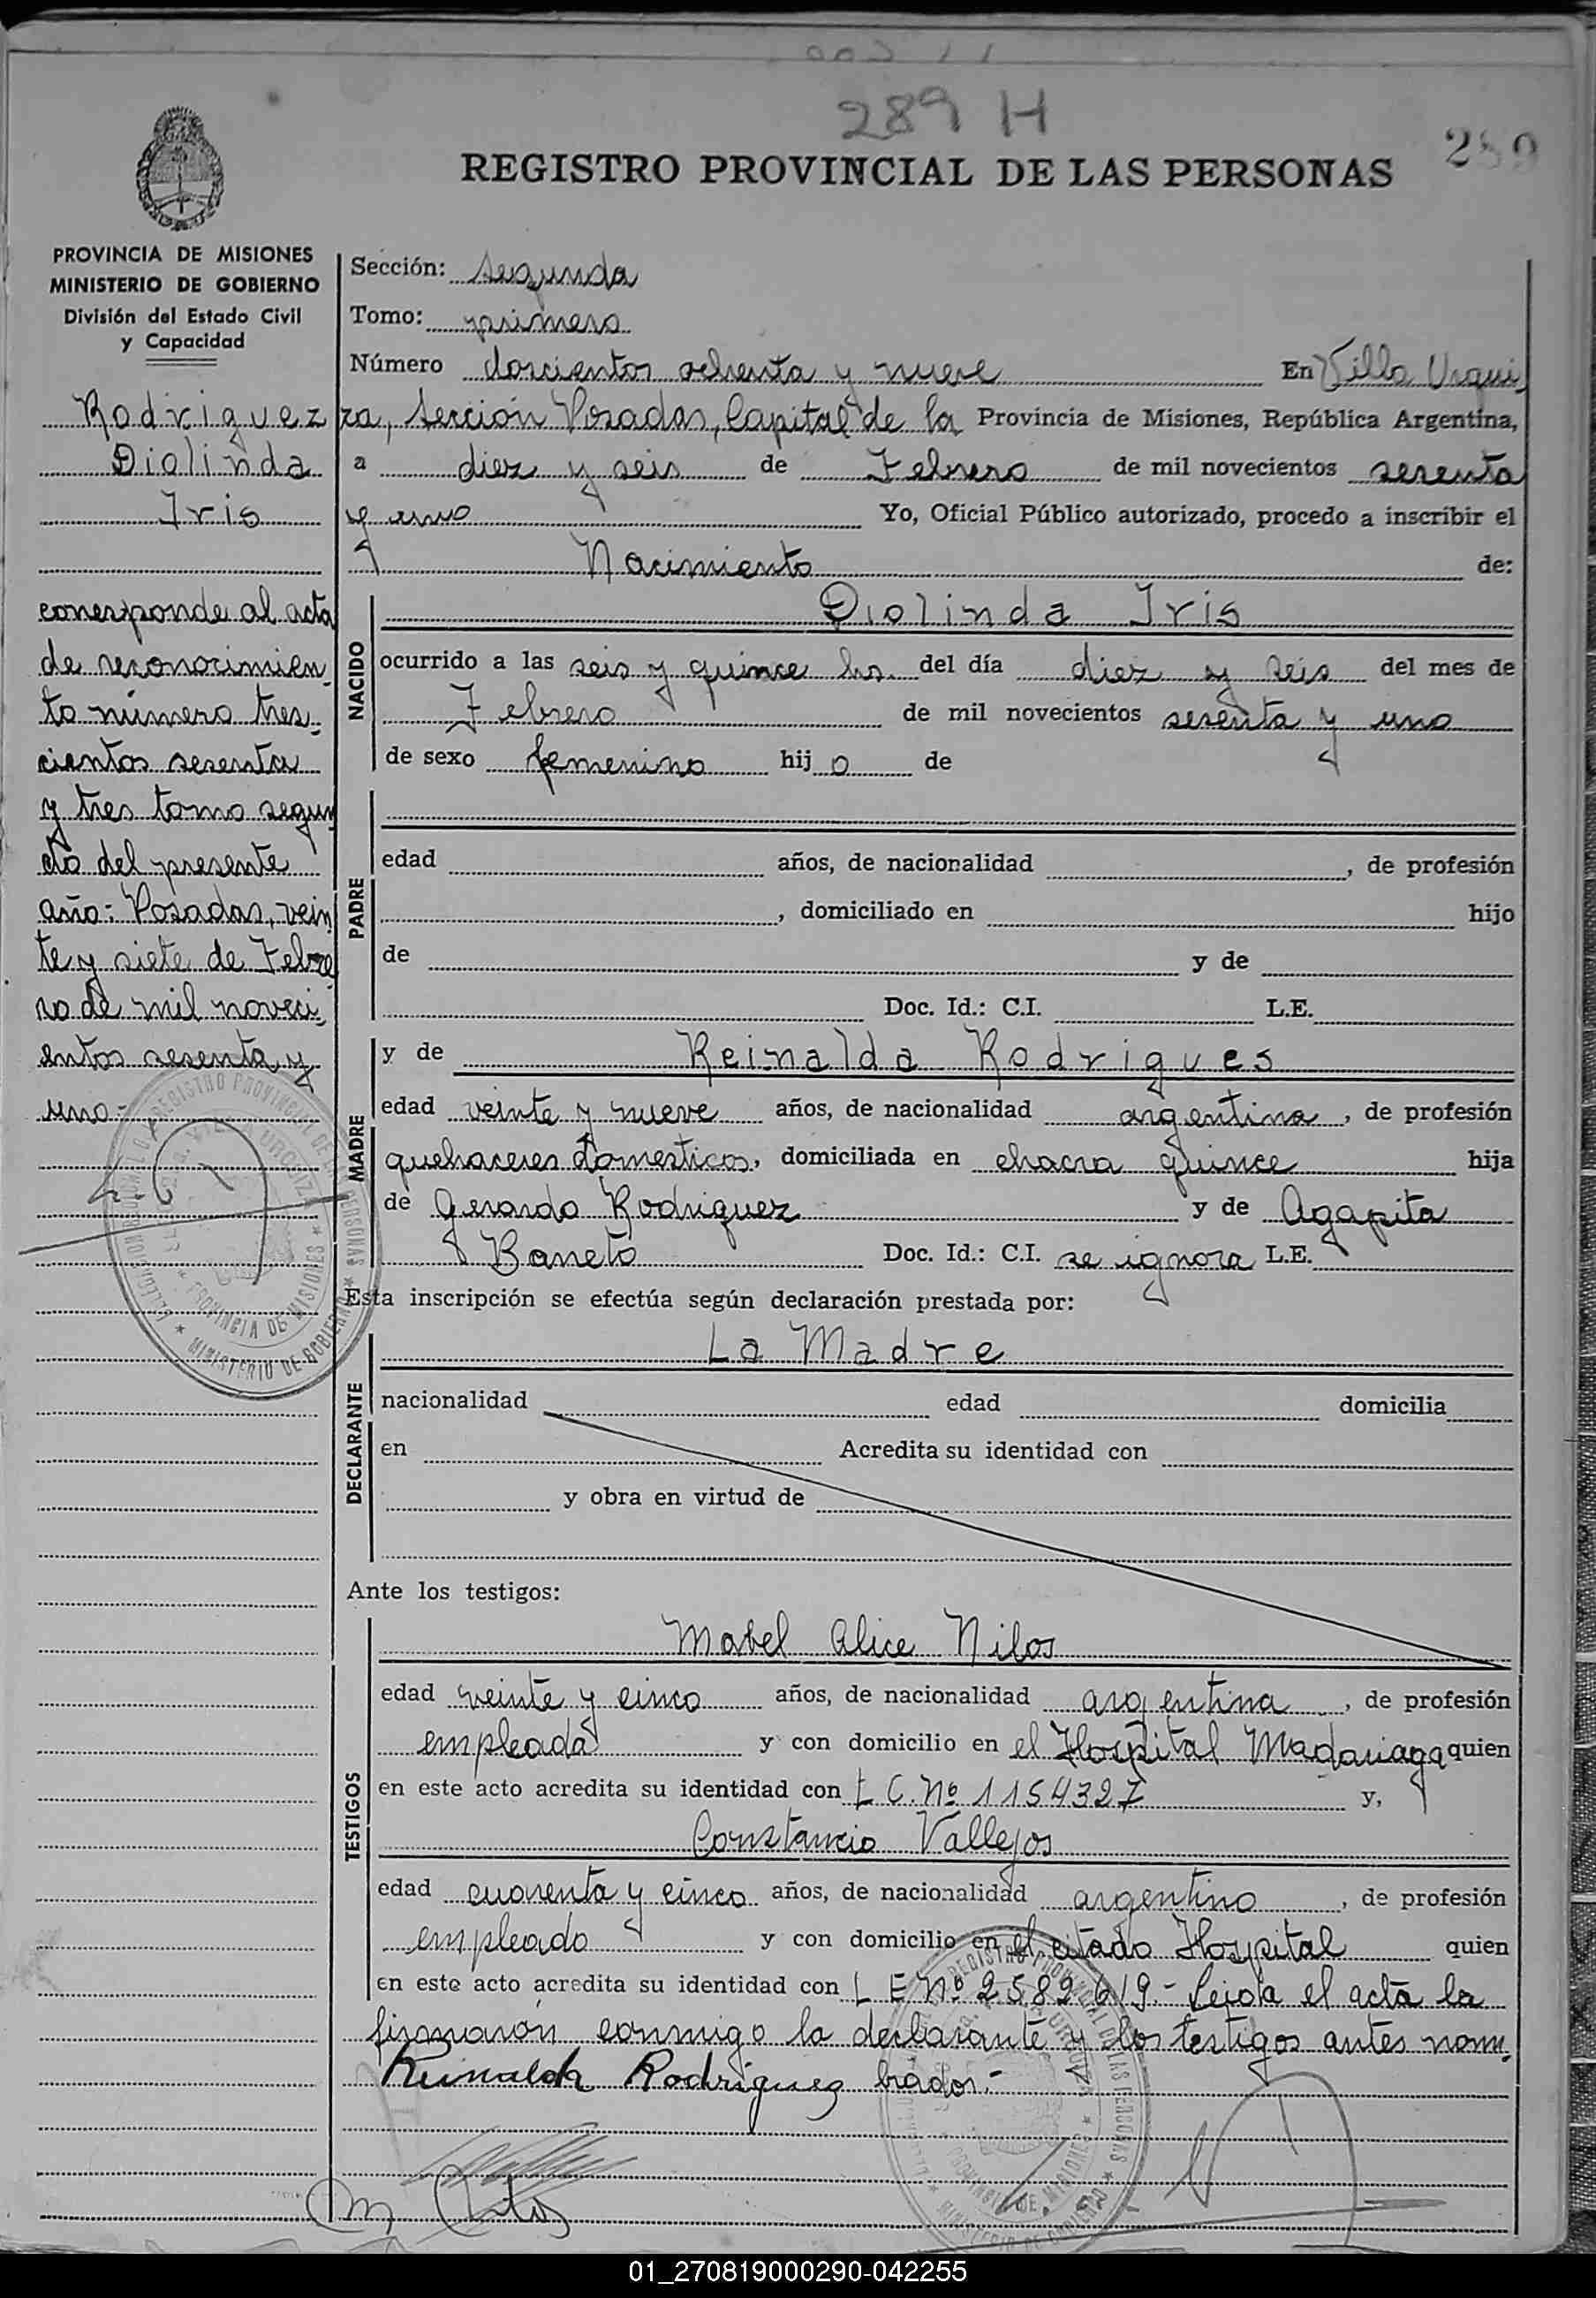 289 H
289
REGISTRO PROVINCIAL DE LAS PERSONAS
PROVINCIA DE MISIONES
MINISTERIO DE GOBIERNO
División del Estado Civil
y Capacidad
Rodriguez
Diolinda
Iris
corresponde al acta
de reconocimien
to número tres
cientos sesenta
y tres tomo segun
do del presente
año: Posadas, vein
te y siete de Febre
ro de mil noveci
entos sesenta y
uno-
Sección: segunda
Tomo: primero
Número doscientos ochenta y nueve En Villa Urqui
za, Sección Posadas, Capital de la Provincia de Misiones, República Argentina,
a diez y seis de Febrero de mil novecientos sesenta
y uno Yo, Oficial Público autorizado, procedo a inscribir el
Nacimiento de:
NACIDO
Diolinda Iris
ocurrido a las seis y quince hs. del día diez y seis del mes de
Febrero de mil novecientos sesenta y uno
de sexo femenino hij o de
PADRE
edad años, de nacionalidad , de profesión
, domiciliado en hijo
de y de
Doc. Id.: C.I. L.E.
MADRE
y de Reinalda Rodrigues
edad veinte y nueve años, de nacionalidad argentina , de profesión
quehaceres domesticos, domiciliada en chacra quince hija
de Gerardo Rodriguez y de Agapita
Baneto Doc. Id.: C.I. se ignora L.E.
Esta inscripción se efectúa según declaración prestada por:
DECLARANTE
La Madre
nacionalidad edad domicilia
en Acredita su identidad con
y obra en virtud de
Ante los testigos:
TESTIGOS
Mabel Alice Nilos
edad veinte y cinco años, de nacionalidad argentina , de profesión
empleada y con domicilio en el Hospital Madariaga quien
en este acto acredita su identidad con L C. Nº 1154327 y,
Constancio Vallejos
edad cuarenta y cinco años, de nacionalidad argentino , de profesión
empleado y con domicilio en el citado Hospital quien
en este acto acredita su identidad con L E Nº 2589619.- Leida el acta la
firmaron conmigo la declarante y los testigos antes nom
Reinalda Rodriguez brados.-
01_270819000290-042255